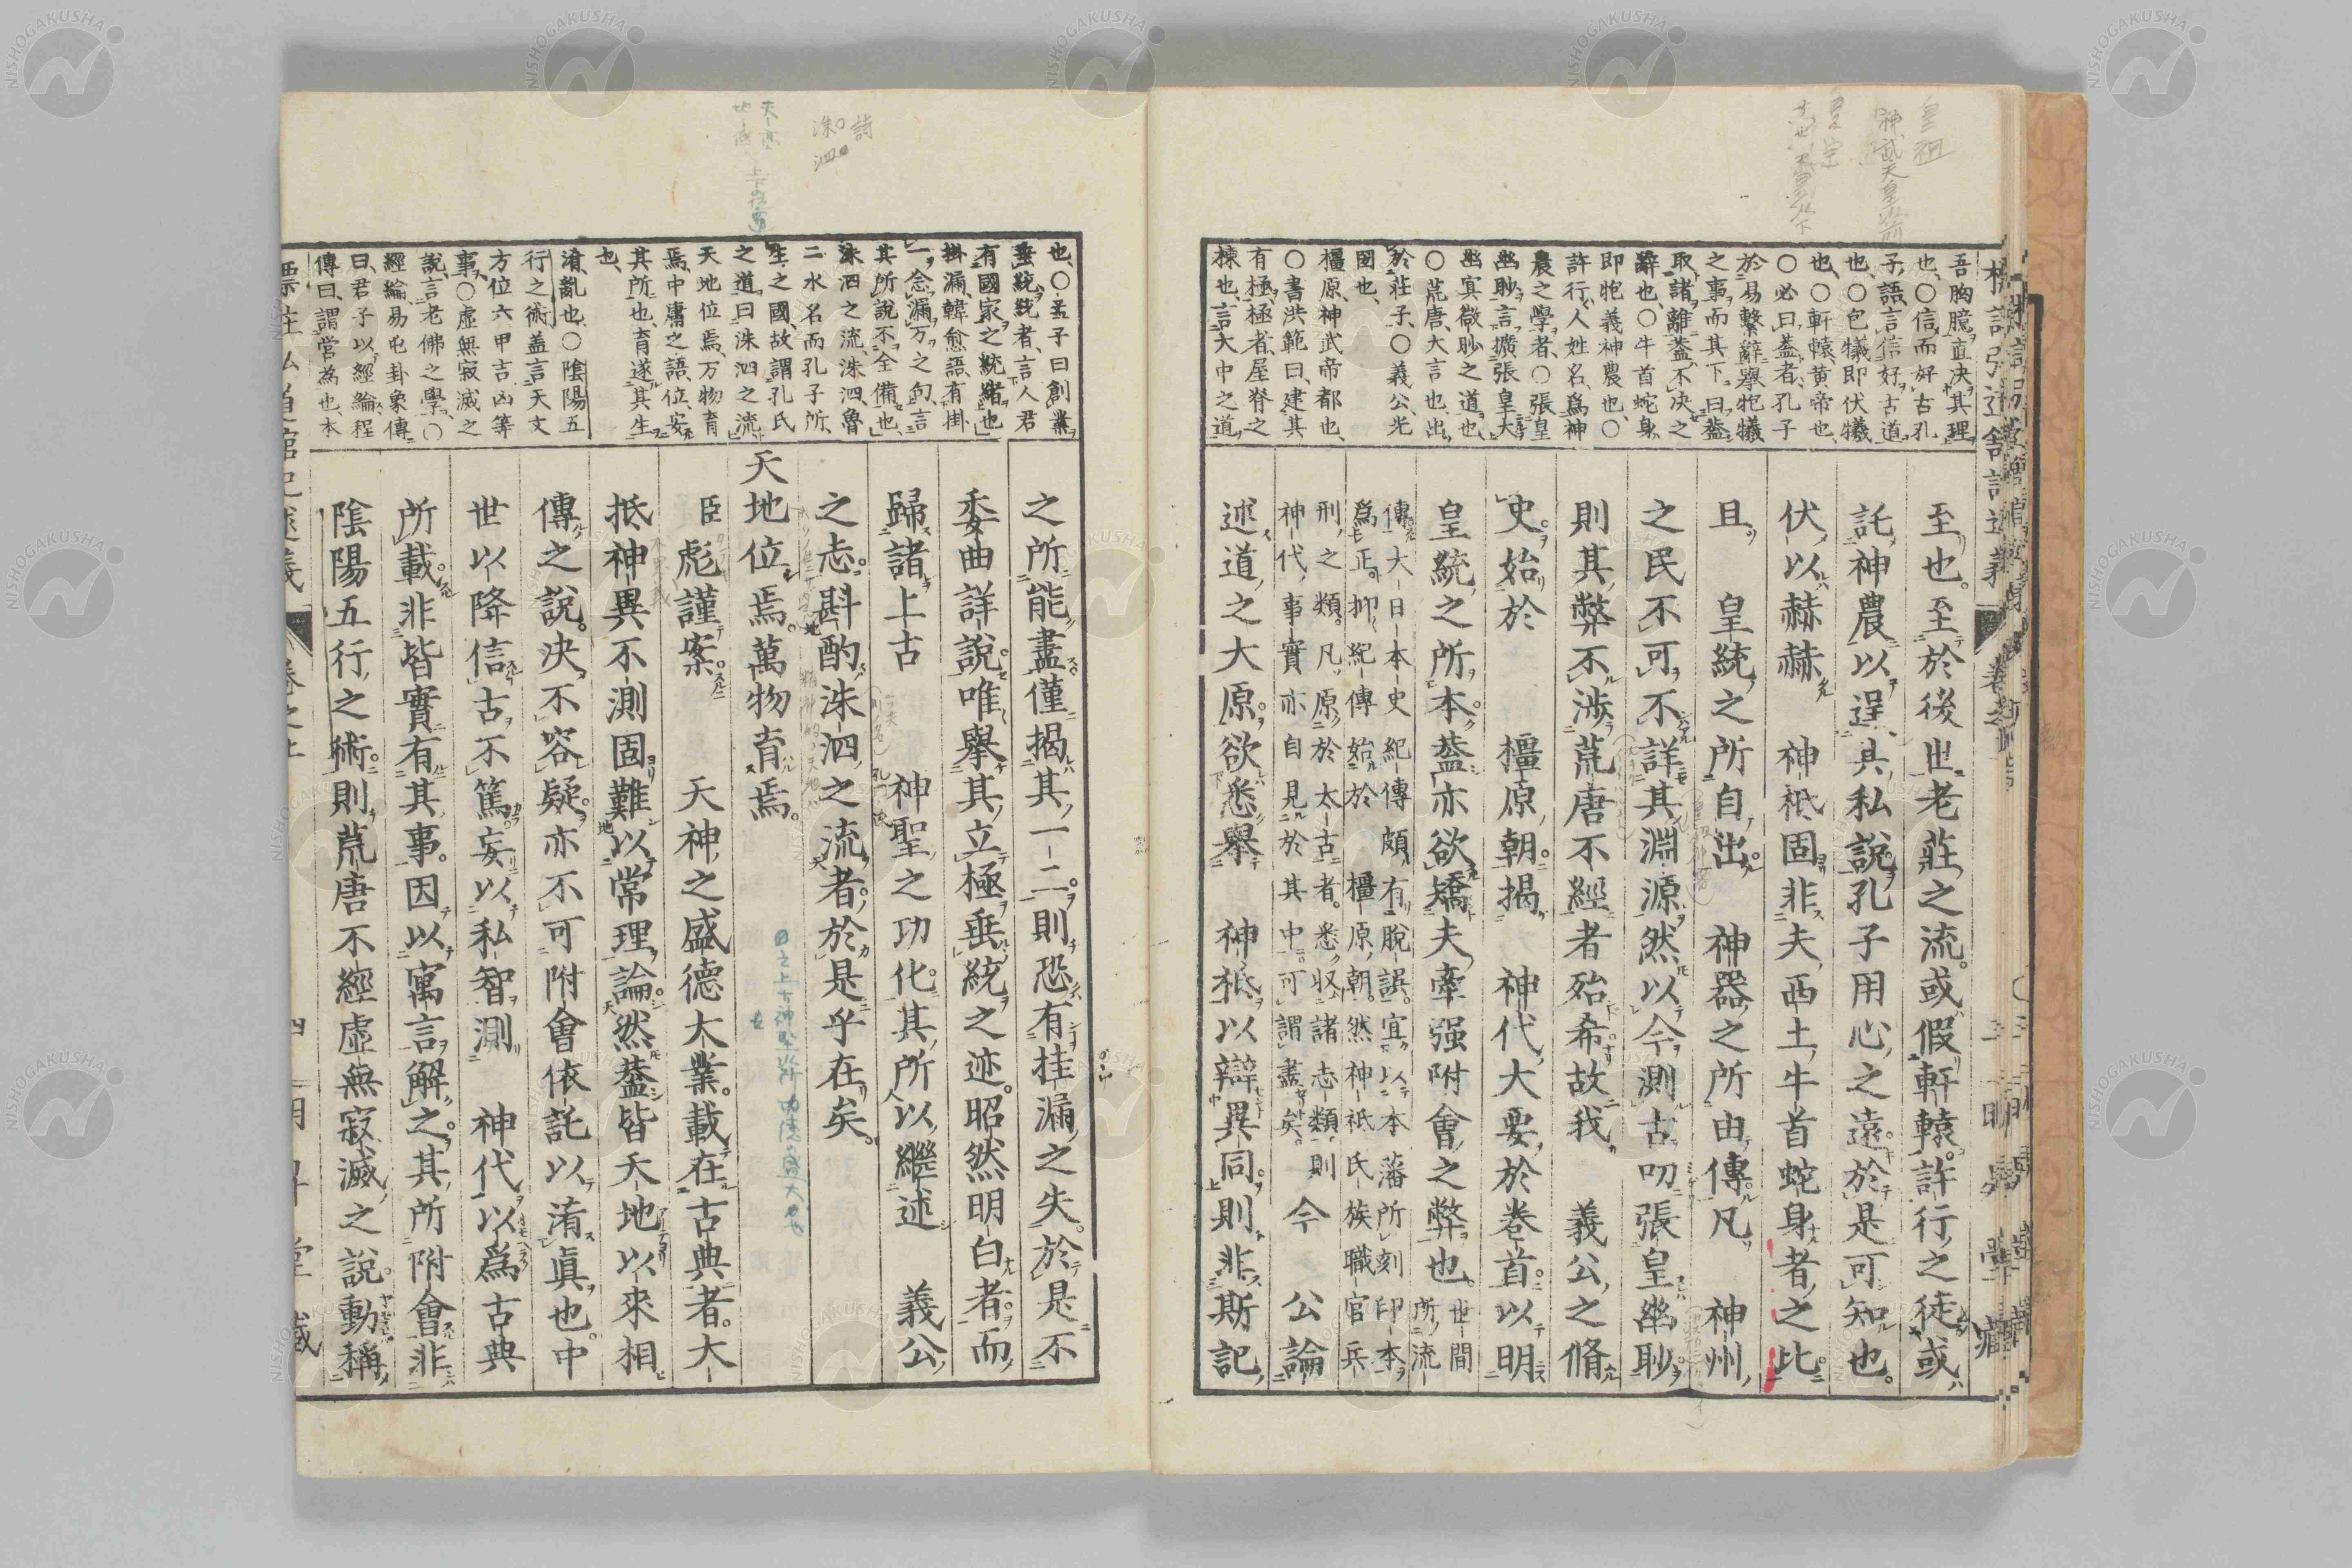 皇祖
神武天皇以前
皇宗
吾胸臆直決其理
也、〇信而好古孔
子語、言信好古道
也、〇包犧即伏犧
也、〇軒轅、黄帝也、
〇必曰蓋者、孔子
於易繋辭舉牠犧
之事而其下曰蓋
取諸離、蓋、不決之
辭也、〇牛首蛇身、
即牠義神農也、〇
許行、人姓名、爲神
農之學者、〇張皇
幽眇、言擴張皇大
幽冥微眇之道也、
〇荒唐、大言也、出
於莊子、〇義公、光
圀也、
橿原、神武帝都也、
〇書洪範曰、建其
有極、極者、屋脊之
棟也、言大中之道
至也。至於後世老莊之流。或假軒轅。許行之徒。或
託神農以逞其私說。孔子用心之遠。於是可知也。
伏以赫赫 神祇固非夫西土牛首蛇身者之比。
且 皇統之所自出。 神器之所由傳。凡 神州
之民不可不詳其淵源。然以今測古。叨張皇幽眇。
則其弊不涉荒唐不經者殆希。故我 義公之脩
史。始於 橿原朝。揭 神代大要於卷首。以明
皇統之所本。蓋亦欲矯夫牽强附會之弊也。世間所流
傳大日本史紀傳頗有脫誤。宜以本藩所刻印本
爲正。抑紀傳始於橿原朝。然神祇氏族職官兵
刑之類。凡原於太古者。悉收諸志類。則
神代事實亦自見於其中。可謂盡矣。 今 公論
述道之大原。欲悉舉 神祇以辯異同。則非斯記
詩
洙
泗
也、〇孟子曰創業
垂統、統者、言人君
有國家之統緒也、
掛漏、韓愈語、有掛
一念漏万之句、言
其所說不全備也、
洙泗之流、洙泗、魯
二水名、而孔子所
生之國、故謂孔氏
之道曰洙泗之流、
天地位焉、万物育
焉、中庸之語、位、安
其所也、育遂其生
也、
淆、亂也、〇陰陽五
行之術、蓋言天文
方位六甲吉凶等
事、〇虛無寂滅之
說、言老佛之學、〇
經綸、易屯卦象傳
曰、君子以經綸、程
傳曰、謂營為也、本
之所能盡。僅揭其一二。則恐有挂漏之失。於是不
委曲詳說。唯舉其立極垂統之迹。昭然明白者。而
歸諸上古 神聖之功化。其所以繼述 義公
之志。斟酌洙泗之流者。於是乎在矣。
天地位焉。萬物育焉。
臣彪謹案。 天神之盛德大業。載在古典者。大
抵神異不測固難以常理論。然蓋皆天地以來相
傳之說。決不容疑。亦不可附會依託以淆眞也。中
世以降信古不篤。妄以私智測 神代。以爲古典
所載非皆實有其事。因以寓言解之。其所附會。非
陰陽五行之術。則荒唐不經虛無寂滅之說。動稱